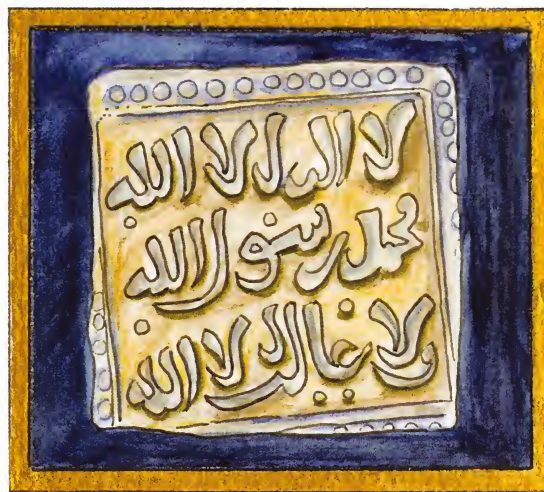 لا اله الا الله
محمد رسول الله
ولا غالب الا الله